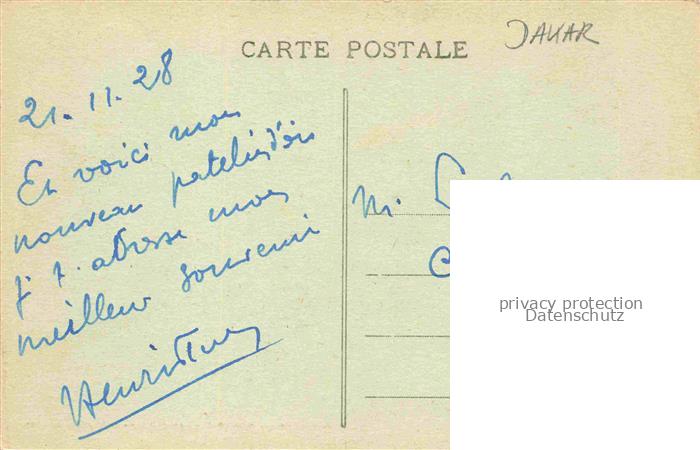 CARTE POSTALE
DAKAR
21.11.28
Et voici mon
nouveau patelin d'où
j t. adresse mon
meilleur souvenir
Henri
M.
privacy protection
Datenschutz